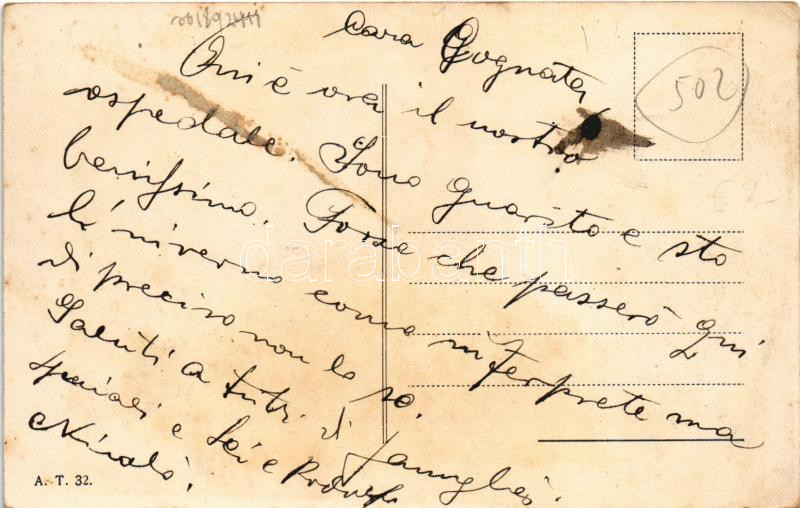 Cara Gognata,
Qui è ora il nostro
ospedale. Sono guarito e sto
benissimo. Forse che passerò qui
l'inverno come interprete ma
di preciso non lo so.
Saluti a tutti di famiglia.
e Lei e
Nicolò.
502
A. T. 32.
darabanth